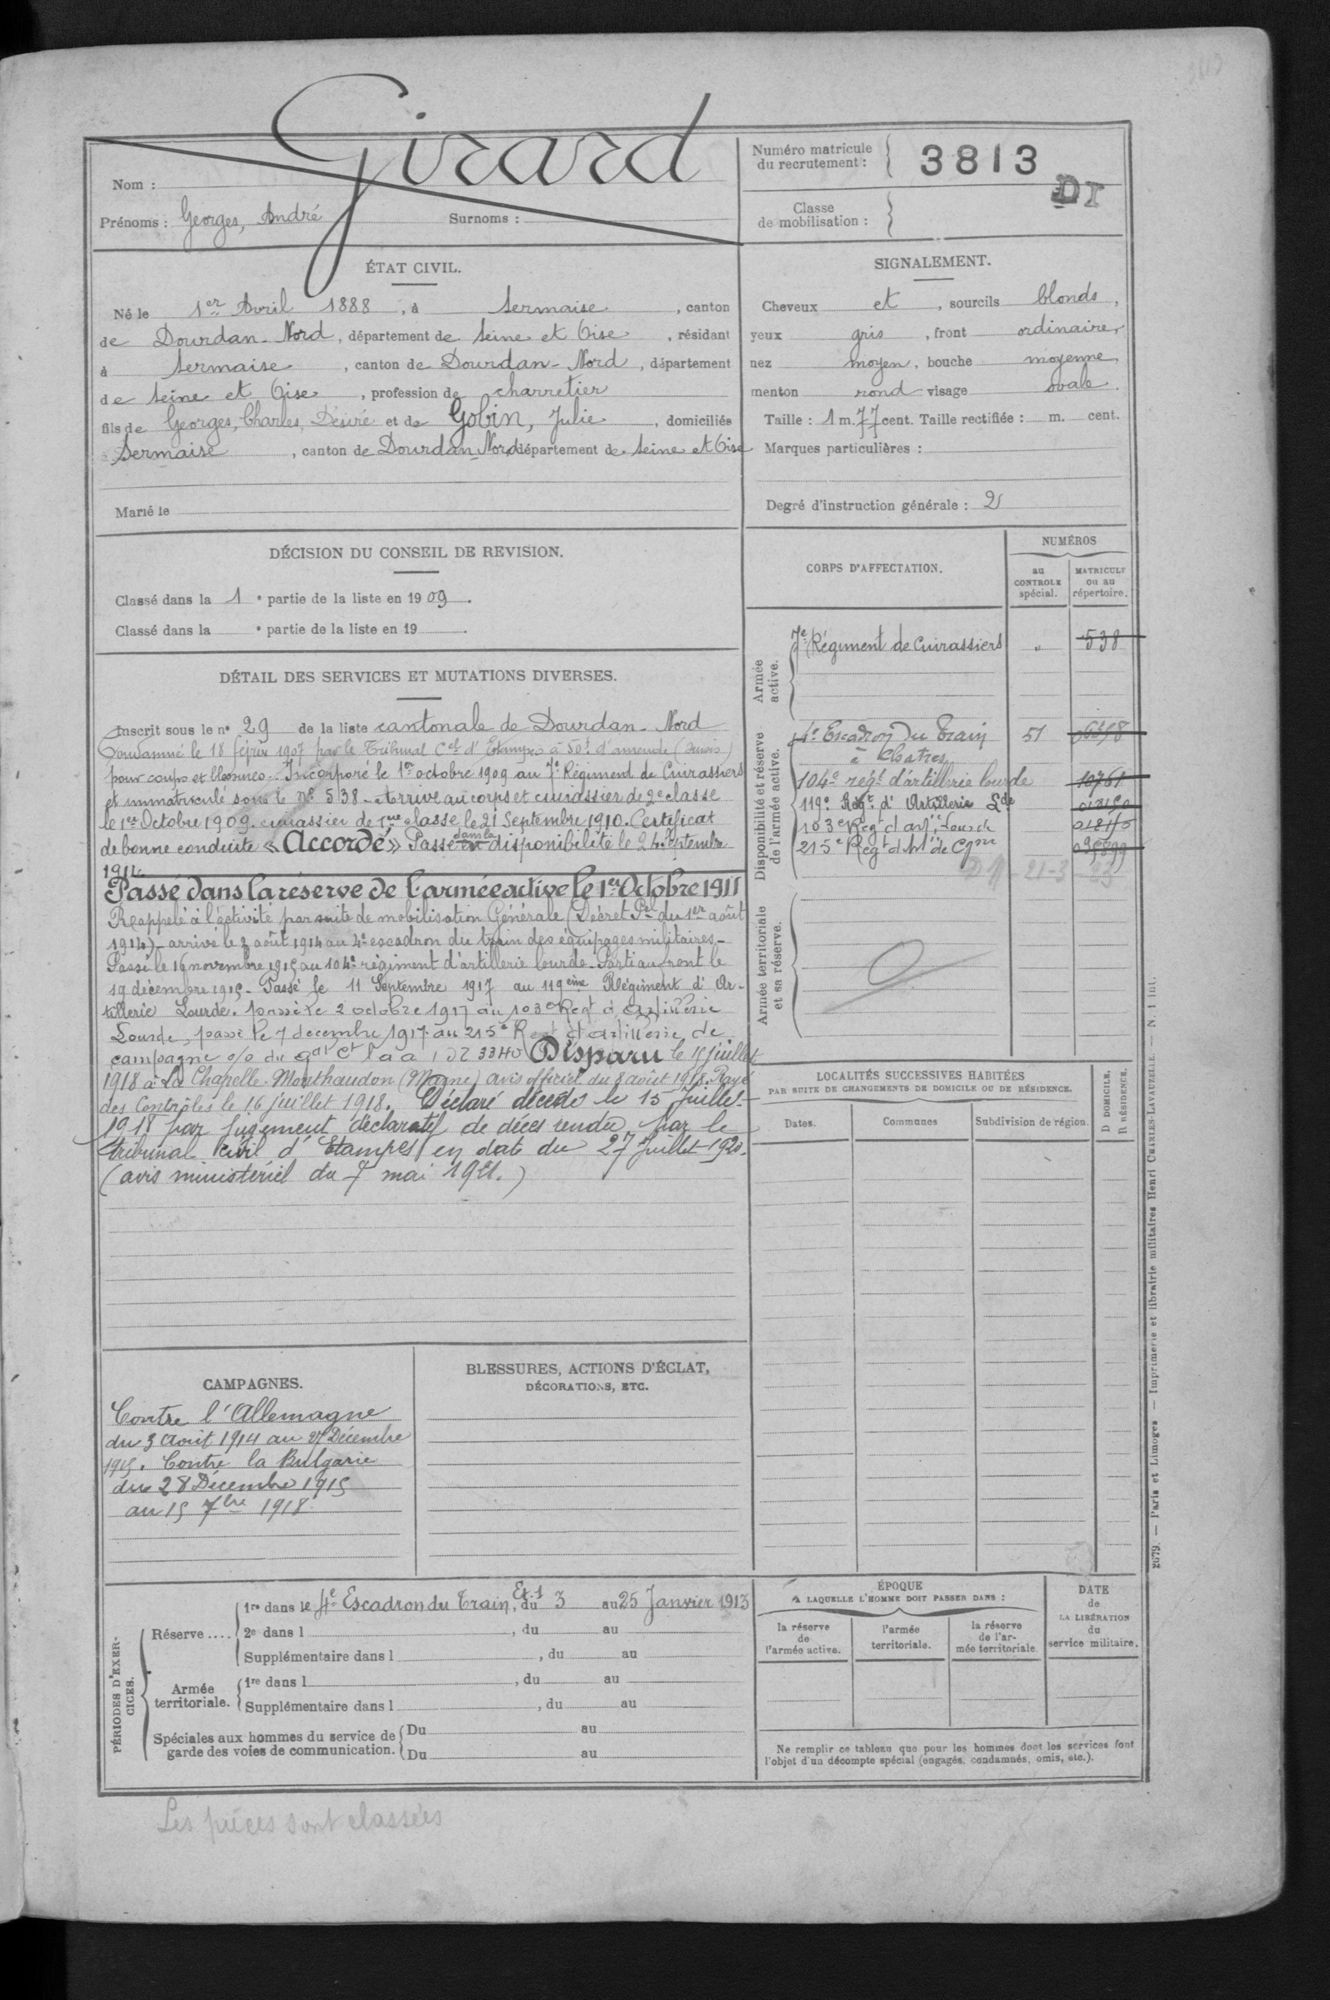 Girard
Nom :
Prénoms : Georges, André Surnoms :
Numéro matricule du recrutement : 3813
DI
Classe de mobilisation :
ÉTAT CIVIL.
Né le 1er Avril 1888, à Sermaise, canton
de Dourdan-Nord, département de Seine et Oise, résidant
à Sermaise, canton de Dourdan-Nord, département
de Seine et Oise, profession de charretier
fils de Georges, Charles, Désiré et de Gobin, Julie, domiciliés
à Sermaise, canton de Dourdan-Nord département de Seine et Oise
Marié le
SIGNALEMENT.
Cheveux et, sourcils blonds,
yeux gris, front ordinaire,
nez moyen, bouche moyenne,
menton rond visage ovale.
Taille : 1 m. 77 cent. Taille rectifiée : m. cent.
Marques particulières :
Degré d'instruction générale : 2
DÉCISION DU CONSEIL DE REVISION.
Classé dans la 1e partie de la liste en 1909.
Classé dans la e partie de la liste en 19
DÉTAIL DES SERVICES ET MUTATIONS DIVERSES.
Inscrit sous le n° 29 de la liste cantonale de Dourdan-Nord
Condamné le 18 février 1907 par le Tribunal Cel d'Etampes à 50f d'amende (sursis)
pour coups et blessures. Incorporé le 1er octobre 1909 au 7e Régiment de Cuirassiers
et immatriculé sous le N° 538. Arrivé au corps et cuirassier de 2e classe
le 1er Octobre 1909. cuirassier de 1re classe le 21 Septembre 1910. Certificat
de bonne conduite « Accordé » Passé dans la disponibilité le 24 Septembre
1911.
Passé dans la réserve de l'armée active le 1er Octobre 1911
Rappelé à l'activité par suite de mobilisation Générale (Décret Pel du 1er août
1914) - arrivé le 3 août 1914 au 4e escadron du train des équipages militaires -
Passé le 16 novembre 1915 au 104e régiment d'artillerie lourde. Parti au front le
19 décembre 1915. Passé le 11 Septembre 1917 au 119ème Régiment d'Ar-
tillerie Lourde. passé le 2 octobre 1917 au 103e Regt d'Artillerie
Lourde, passé le 7 décembre 1917 au 215e Regt d'artillerie de
campagne Disparu le 15 juillet
1918 à La Chapelle-Monthaudon (Marne) avis officiel du 8 août 1918. Rayé
des Contrôles le 16 juillet 1918. Déclaré décédé le 15 Juillet
1918 par jugement déclaratif de décès rendu par le
tribunal Civil d'Etampes en date du 27 Juillet 1920.
(avis ministériel du 7 mai 1921.)
CORPS D'AFFECTATION.
NUMÉROS
au CONTROLE spécial.
MATRICULE ou au répertoire.
Armée active.
7e Régiment de Cuirassiers " 538
Disponibilité et réserve de l'armée active.
4e Escadron du Train 51
à Chatres
104e régt d'artillerie lourde 10761
119e Regt d'Artillerie Lde
103e Regt d'artie Lourde
215e Regt d'Artie de Cgne
Armée territoriale et sa réserve.
LOCALITÉS SUCCESSIVES HABITÉES
PAR SUITE DE CHANGEMENTS DE DOMICILE OU DE RÉSIDENCE.
Dates.
Communes
Subdivision de région.
D DOMICILE. R RÉSIDENCE.
CAMPAGNES.
Contre l'Allemagne
du 3 Août 1914 au 27 Décembre
1915. Contre la Bulgarie
du 28 Décembre 1915
au 15 7bre 1918.
BLESSURES, ACTIONS D'ÉCLAT,
DÉCORATIONS, ETC.
PÉRIODES D'EXERCICES.
Réserve ....
1re dans le 4e Escadron du Train, Ex. 1 du 3 au 25 Janvier 1913
2e dans l , du au
Supplémentaire dans l , du au
Armée territoriale.
1re dans l , du au
Supplémentaire dans l , du au
Spéciales aux hommes du service de garde des voies de communication.
Du au
Du au
ÉPOQUE
A LAQUELLE L'HOMME DOIT PASSER DANS :
la réserve de l'armée active.
l'armée territoriale.
la réserve de l'armée territoriale
DATE de LA LIBÉRATION du service militaire.
Ne remplir ce tableau que pour les hommes dont les services font
l'objet d'un décompte spécial (engagés, condamnés, omis, etc.).
2679. — Paris et Limoges — Imprimerie et librairie militaires Henri CHARLES-LAVAUZELLE. — N. 1 int.
Les pièces sont classées